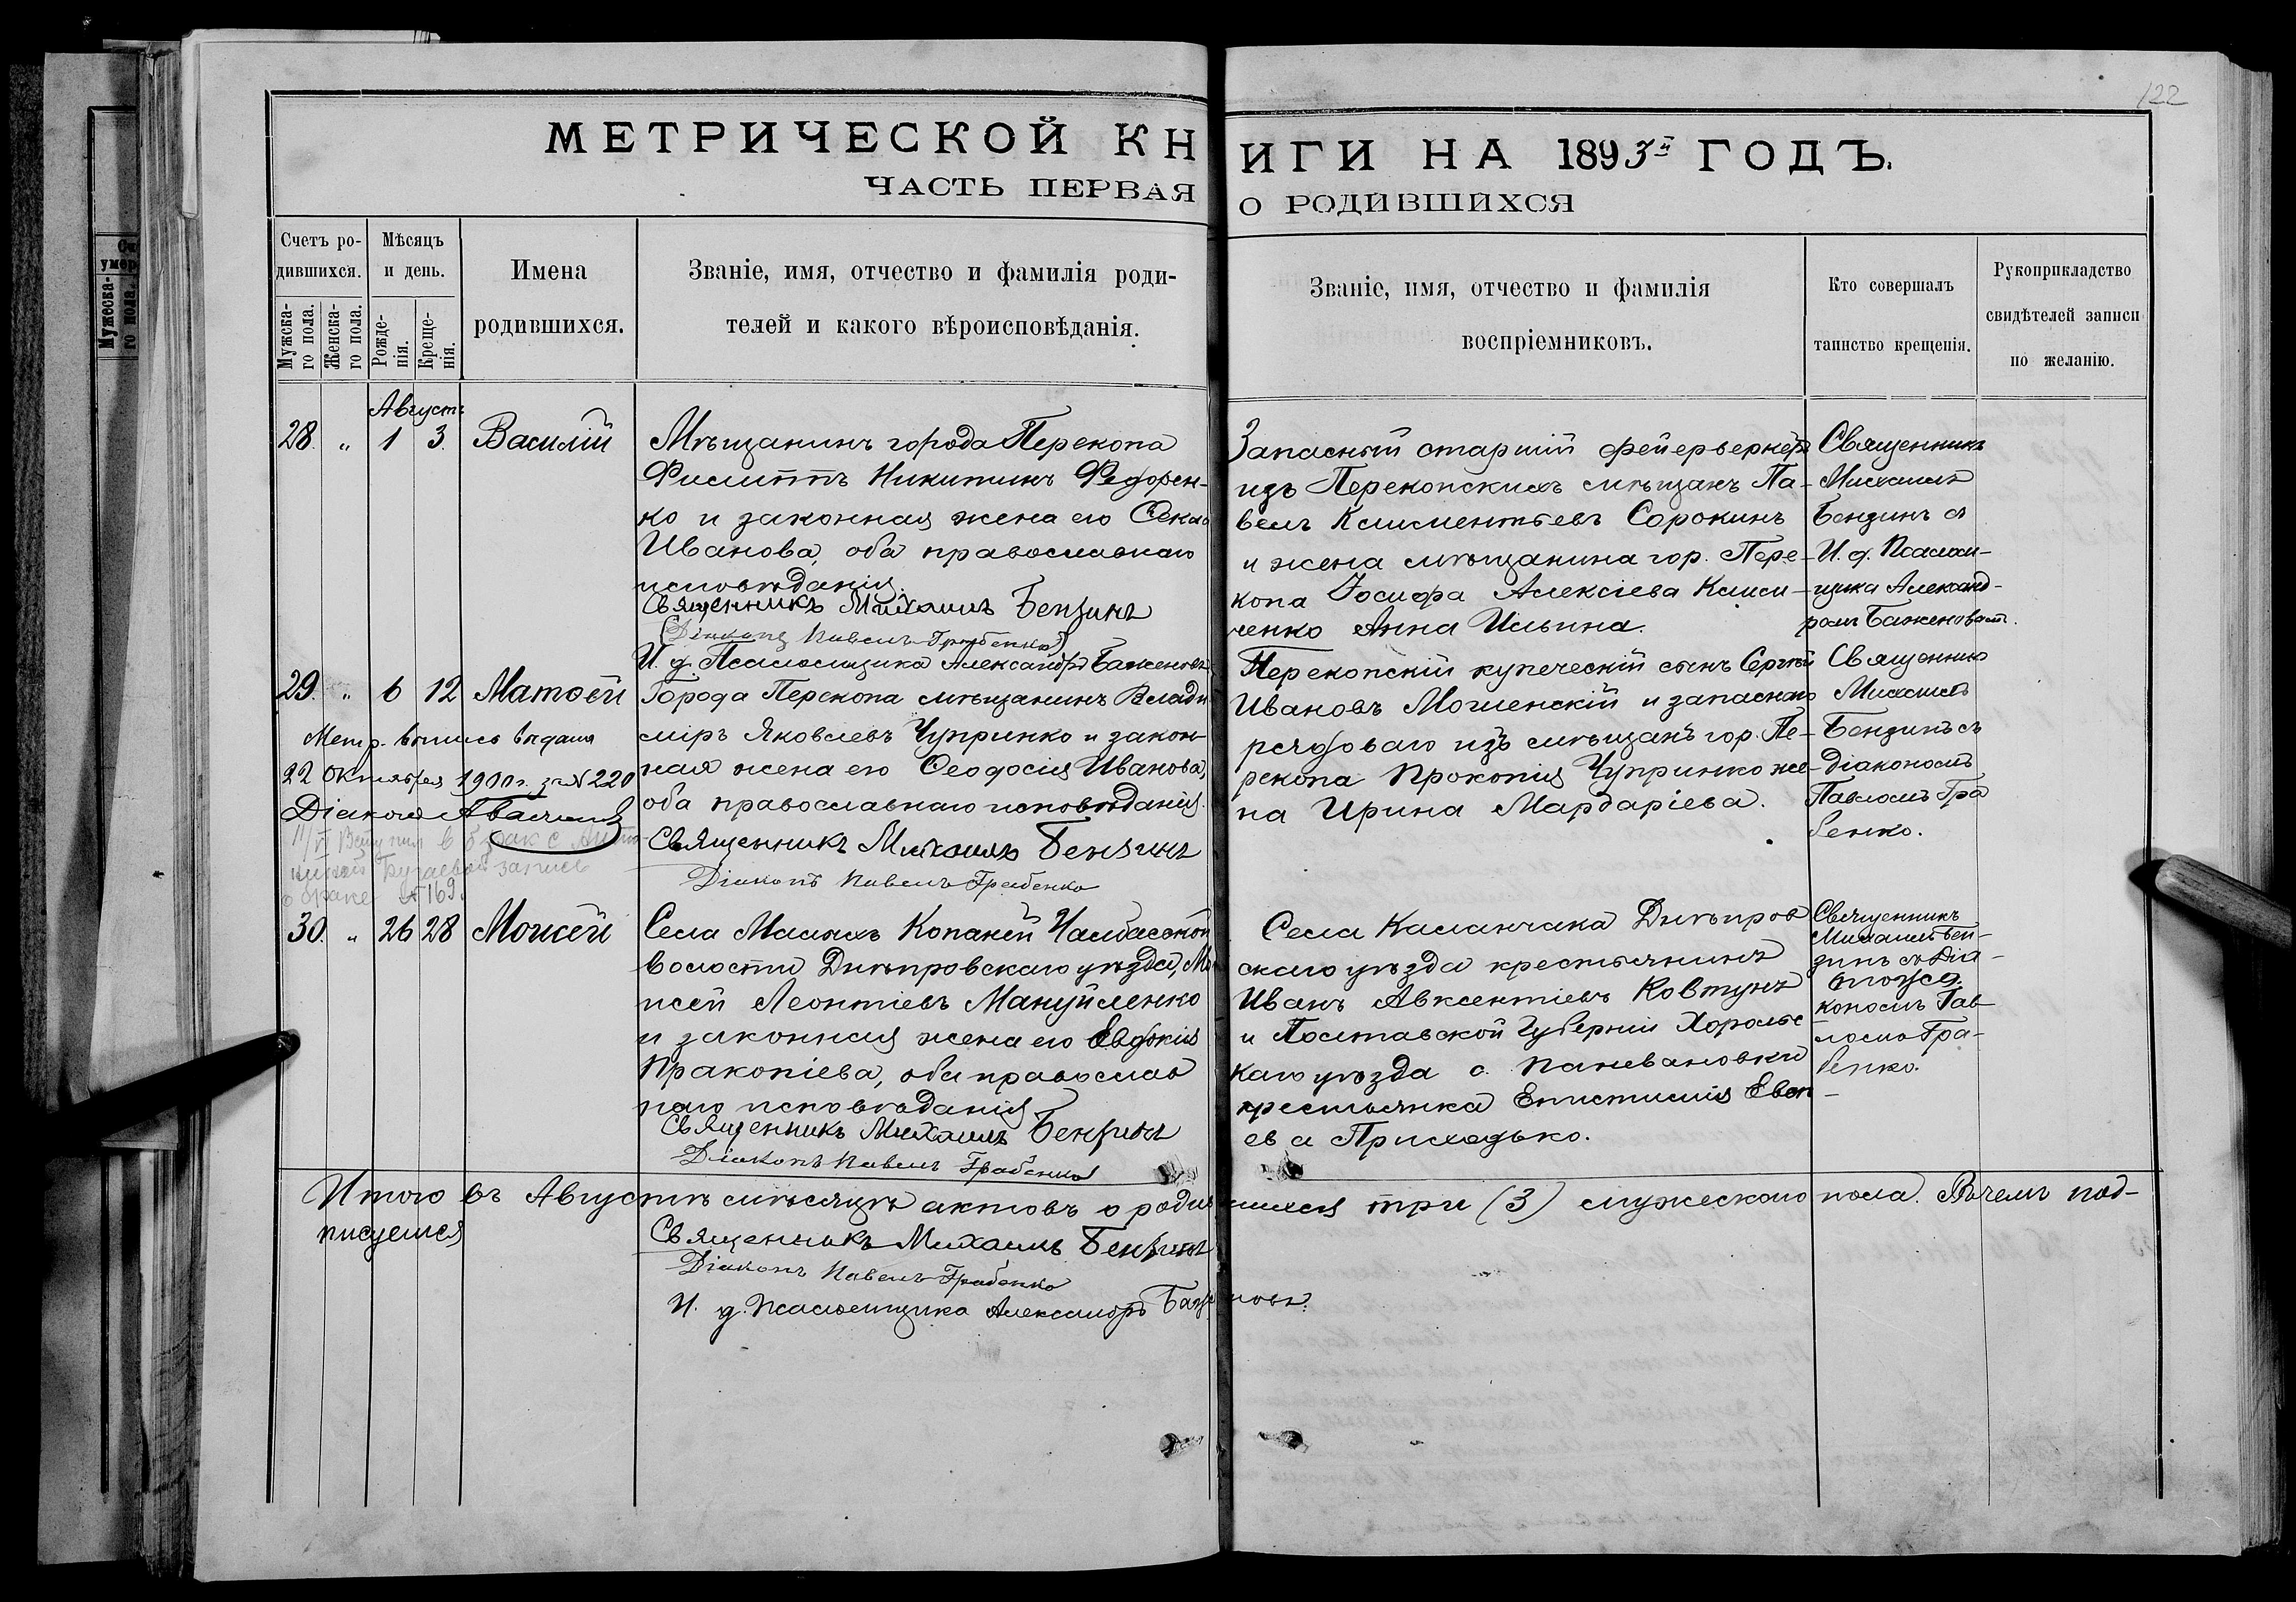 122
МЕТРИЧЕСКОЙ КНИГИ НА 1893й ГОДЪ.
ЧАСТЬ ПЕРВАЯ О РОДИВШИХСЯ
Счетъ ро-
дившихся.
Мужска-
го пола.
Женска-
го пола.
Мѣсяцъ
и день.
Рожде-
нія.
Креще-
нія.
Имена
родившихся.
Званіе, имя, отчество и фамилія роди-
телей и какого вѣроисповѣданія.
Званіе, имя, отчество и фамилія
воспріемниковъ.
Кто совершалъ
таинство крещенія.
Рукоприкладство
свидѣтелей записи
по желанію.
Августъ
28. „ 1 3. Василій
Мѣщанинъ города Перекопа
Филиппъ Никитинъ Федорен-
ко и законная жена его Ѳекла
Иванова, оба православнаго
исповѣданія.
Священникъ Михаилъ Бензинъ
(Діаконъ Павелъ Грабенко)
И. д. Псаломщика Александръ Баженовъ
Запасный старшій фейерверкеръ
изъ Перекопскихъ мѣщанъ Па-
велъ Климентьевъ Сорокинъ
и жена мѣщанина гор. Пере-
копа Іосифа Алексіева Клим-
ченко Анна Ильина.
Священникъ
Михаилъ
Бензинъ съ
И. д. Псалом-
щика Александ-
ромъ Баженовымъ.
29. „ 6 12 Матѳей
Города Перекопа мѣщанинъ Влади
міръ Яковлевъ Чупринко и закон-
ная жена его Ѳеодосія Иванова,
оба православнаго исповѣданія.
Священникъ Михаилъ Бензинъ
Діаконъ Павелъ Грабенко
Метр. выпись выдана
22 Октября 1911 г. за № 220
Діаконъ
Вступил в брак с
запись
о браке № 169.
Перекопскій купеческій сынъ Сергѣй
Ивановъ Могиленскій и запаснаго
рядоваго изъ мѣщанъ гор. Пе-
рекопа Прокопія Чупринко же-
на Ирина Мардаріева.
Священник
Михаилъ
Бензинъ съ
діакономъ
Павломъ Гра
бенко.
30. „ 26 28 Моисей
Села Малыхъ Копаней Чалбасской
волости Днѣпровскаго уѣзда, Мо
исей Леонтіевъ Мануйленко
и законная жена его Евдокія
Пракопіева, оба православ
наго исповѣданія
Священникъ Михаилъ Бензинъ
Діаконъ Павелъ Грабенко
Села Каланчака Днѣпров
скаго уѣзда крестьянинъ
Иванъ Авксентіевъ Ковтунъ
и Полтавской Губерніи Хорольс
каго уѣзда с. Паневановки
крестьянка Епистимія Евсѣ-
ева Приходько.
Священникъ
Михаилъ Бен-
зинъ съ Діа-
кономъ Пав
ломъ Гра-
бенко.
Итого въ Августѣ мѣсяцѣ актовъ о родившихся три (3) мужескаго пола. Въ чемъ под-
писуемся
Священникъ Михаилъ Бензинъ
Діаконъ Павелъ Грабенко
И. д. Псаломщика Александръ Баженовъ.